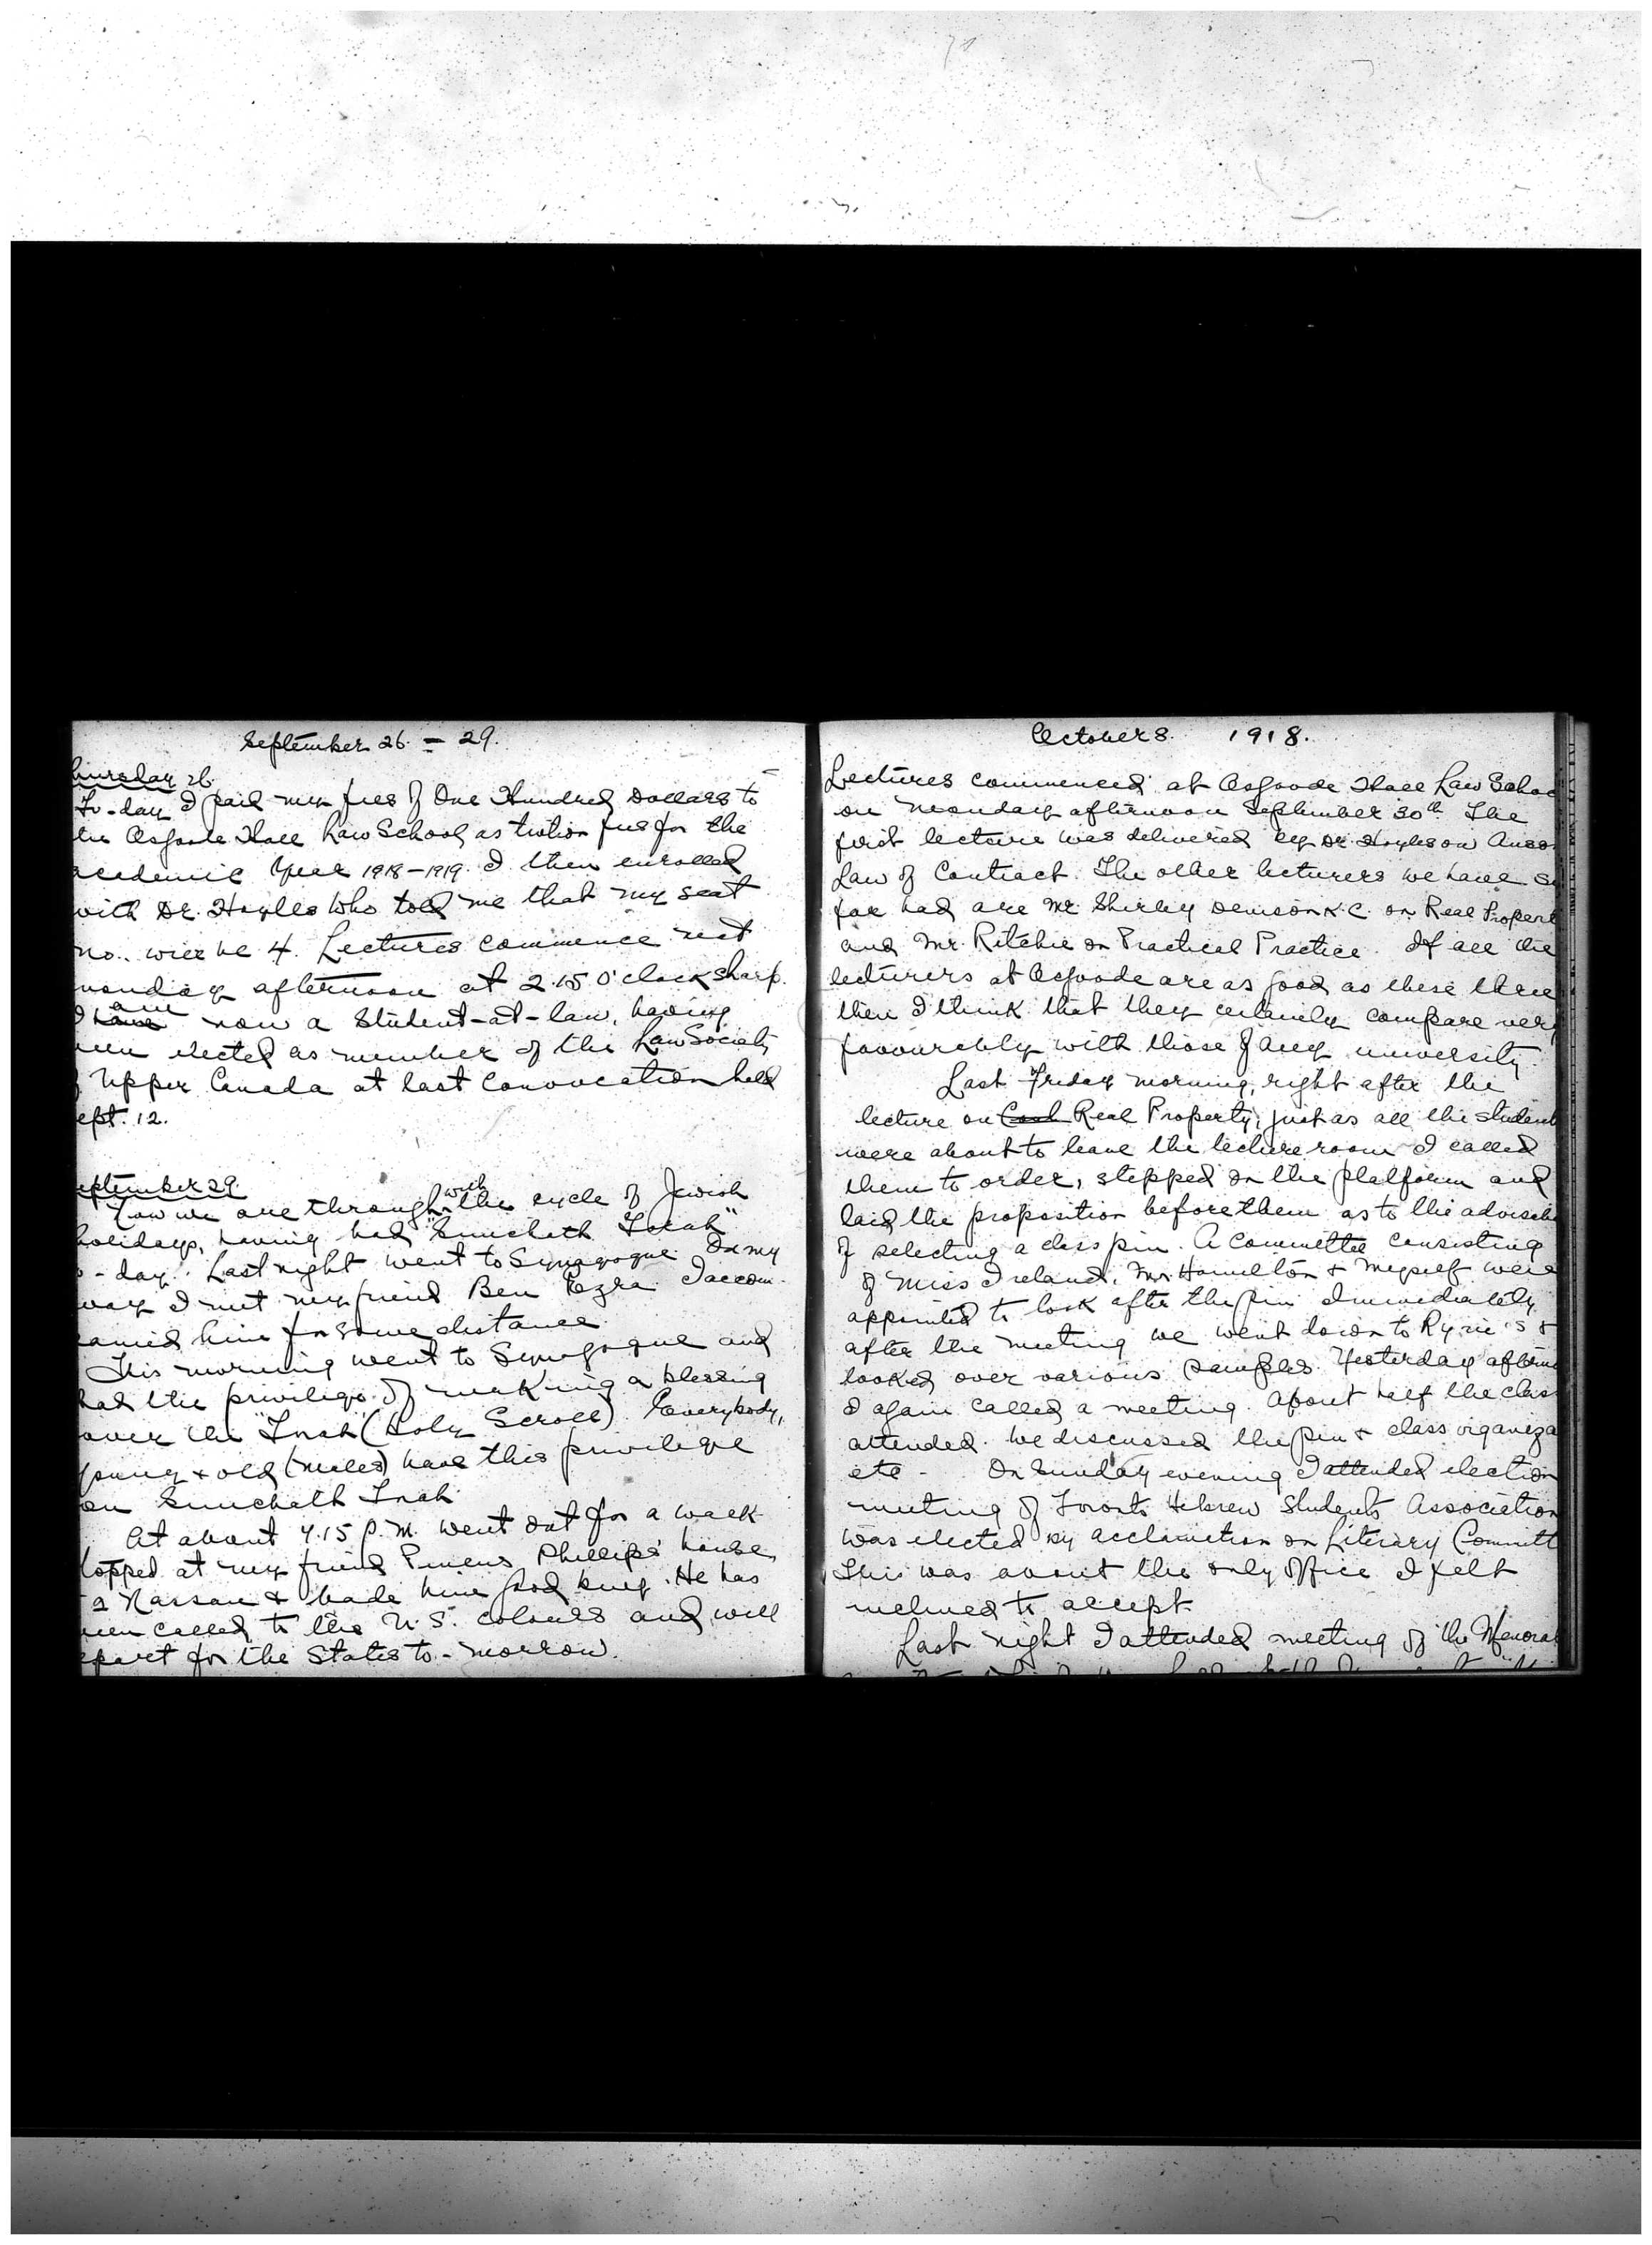 September 26 - 29.
hursday 26.
To-day I paid my fees of One Hundred Dollars to
the Osgoode Hall Law School, as tuition fees for the
academic year 1918-1919. I then enrolled
with Dr. Hoyles who told me that my seat
no. will be 4. Lectures commence next
monday afternoon at 2.15 O'clock sharp.
I have am now a Student-at-law, having
een elected as member of the Law Society
of Upper Canada at last Convocation held
ept. 12.
eptember 29.
Now we are through with the cycle of Jewish
holidays, having had "Simchath Torah"
o-day. Last night went to Synagogue. On my
way I met my friend Ben Ezra. I accom-
anied him for some distance.
This morning went to Synagogue and
had the privilege of making a blessing
over the "Torah" (Holy Scroll). Everybody,
young & old (males) have this privilege
on Simchath Torah.
At about 4.15 P.M. went out for a walk
topped at my friend Pincus Phillips' house,
2 Nassau & bade him good bye. He has
een called to the U.S. colours and will
epart for the States to-morrow.
October 8. 1918.
Lectures commenced at Osgoode Hall Law Schoo
on Monday afternoon September 30th. The
first lecture was delivered by Dr. Hoyles on Anso
Law of Contract. The other lecturers we have so
far had are Mr. Shirley Denison K.C. on Real Propert
and Mr. Ritchie on Practical Practice. If all the
lecturers at Osgoode are as good as these three
then I think that they certainly compare very
favourably with those of any university.
Last Friday morning, right after the
lecture on Cont Real Property, just as all the student
were about to leave the lecture room I called
them to order, stepped on the platform and
laid the proposition before them as to the advisab
of selecting a class pin. A Committee consisting
of Miss Ireland, Mr. Hamilton & myself were
appointed to look after the pin. Immediately
after the meeting we went down to Ryrie's &
looked over various samples. Yesterday aftern
I again called a meeting. About half the class
attended. We discussed the pin & class organiza
etc - On Sunday evening I attended election
meeting of Toronto Hebrew Students Association
was elected by acclamation on Literary Committ
This was about the only office I felt
inclined to accept.
Last night I attended meeting of the Menorah